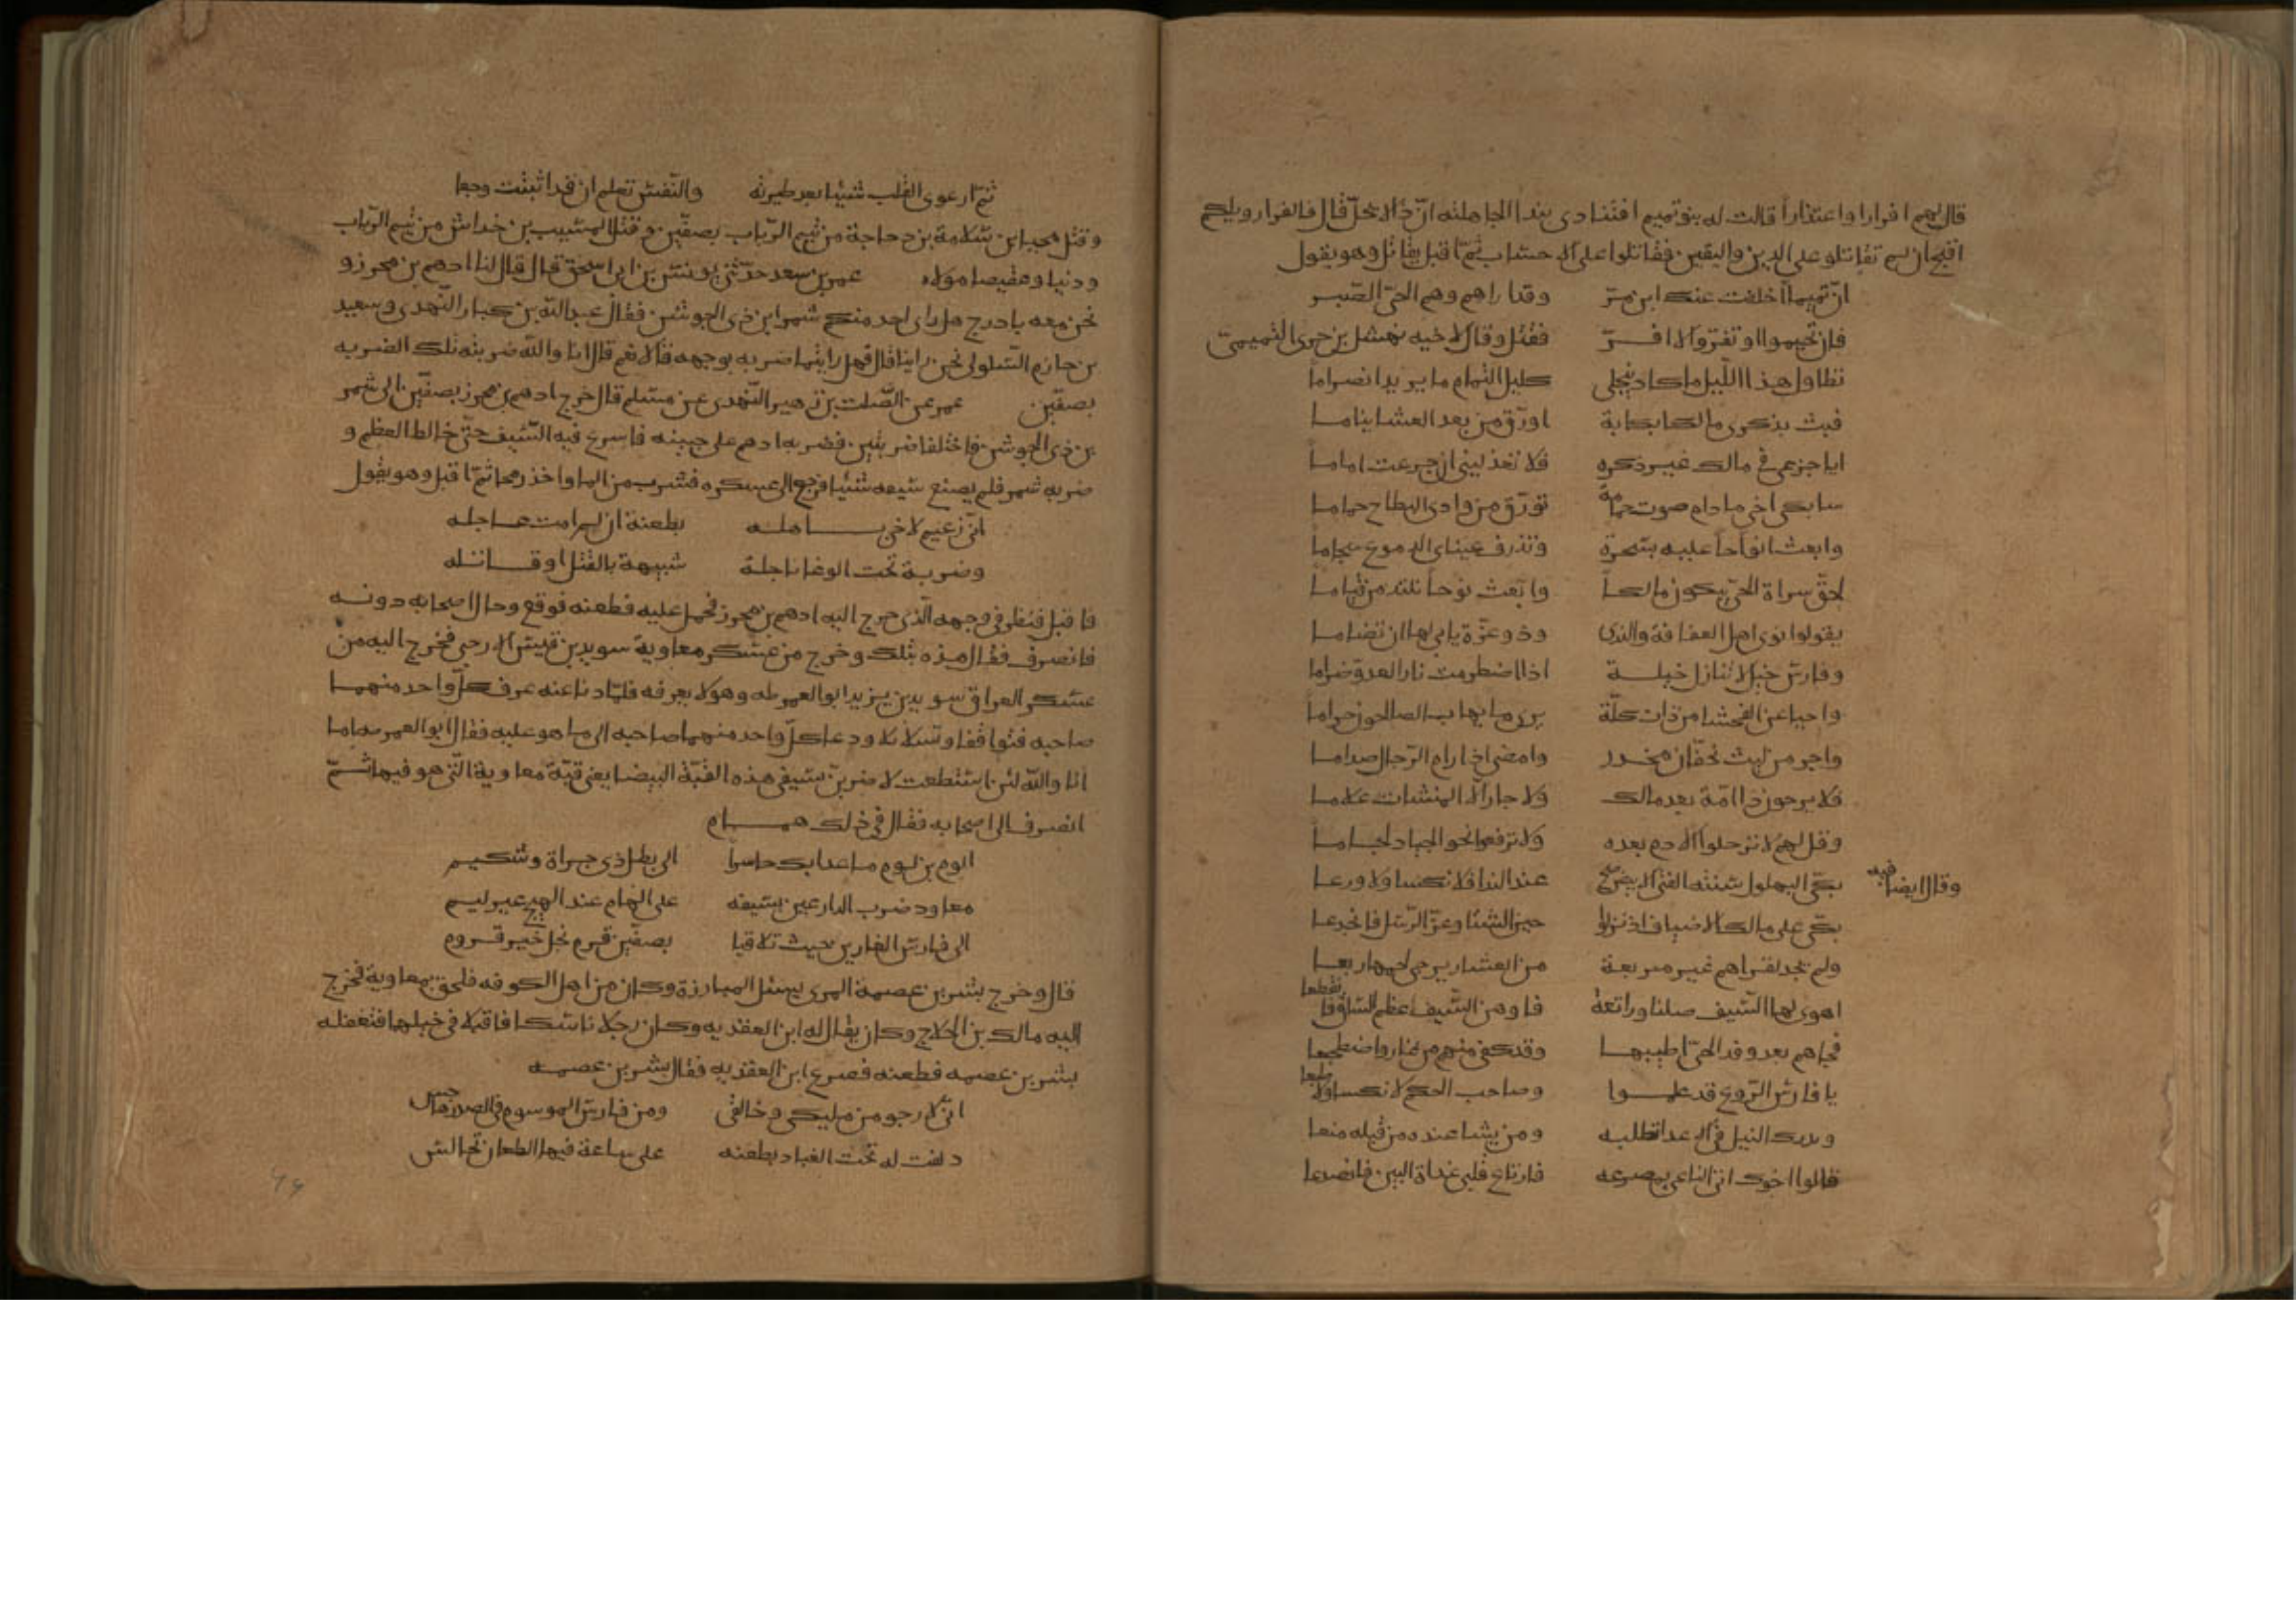 قال لهم افرارا واعتذاراً قالت له بنو تميم افتنادى بندا الجاهلية انّ ذا لا يحلّ قال فالفرار ويلكم
اقبح ان لم تقاتلوا على الدين واليقين فقاتلوا على الاحساب ثمّ اقبل يقاتل وهو يقول
انّ تميماً اخلفت عنك ابن مرّ وقد اراهم وهم الحيّ الصّبر
فان تخيموا او تفرّوا لا افرّ فقتل وقال اخيه نهشل بن حرى التميمىّ
تطاول هذا الليل ما كاد ينجلى كليل التمام ما يريد انصراما
فبت بذكرى مالك بكابة اورّق من بعد العشا نياما
ابا جزعى فى مالك غير ذكره فلا تعذلينى ان جزعت اماما
سابكى اخى ما دام صوت حمامة تورّق من وادى البطاح حماما
وابعث انواحاً عليه بسحرة وتذرف عيناى الدموع سجاما
لحقّ سراة الحىّ يبكون مالكاً وابعث نوحا قياما
يقولوا ثوى اهل العفافة والندى وذو عزّة يابى لها ان تضاما
وفارس خيل لا تنازل خيله اذا اضطرمت نار العدوّ ضراما
واحيا عن الفحشا من ذات كلّة يرى ما يهاب الصالحون حراما
واجر من ليث بخفّان مخدر وامضى اذا رام الرّجال صداما
فلا يرجون ذا امّة بعد مالك ولا جار الا المنشات علاما
وقل لهم لا ترحلوا الادم بعده ولا ترفعوا نحو الجياد لجاما
وقال ايضا فيه بكّى البهلول شنته الفتى عند الندا فلا نكسا ولا ورعا
بكّى على مالك الاضياف اذ نزلوا حين الشتا وعزّ الرّسل فانجدعا
ولم يجد لقراهم غير مربعة من العشار يرجى لحمها ربعا
اهوى لها السّيف صلتا وراتعة فاوهن السّيف عظم السّاق فانقطعا
فجاهم بعد رفد الحىّ اطيبها وقد كفى منهم من غاب واضطجعا
يا فارس الرّوع قد علموا وصاحب الحكم لا نكسا ولا طبعا
ومدرك النيل فى الاعدا تطلبه ومن يشا عنده من قبله منعا
قالوا اخوك اتى الناعى بمصرعه فارتاع قلبى غداة البين فانصدعا
ثمّ ارعوى القلب شيئا بعد طيرته والنّفس تعلم ان قد اثبتت وجعا
وقتل محيا بن سلامة بن دجاجة من تيم الرّباب بصفّين وقتل المسّيب بن خداش من تيم الرّباب
ودينا وعقيصا مولاه عمر بن سعد حدّثنى يونس بن ابى اسحق قال قال لنا ادهم بن محرز و
نحن معه باذرح هل راى احد منكم شمر ابن ذى الجوشن فقال عبد اللّه بن كبار النّهدى وسعيد
بن حازم السّلولى نحن راينا قال فهل رايتما ضربه بوجهه قالا نعم قال انا واللّه ضربته تلك الضربه
بصفّين عمر عن الصّلت بن زهير النّهدى عن مسلم قال خرج ادهم بن محرز بصفّين الى شمر
بن ذى الجوشن فاختلفا ضربتين فضربه ادهم على جبينه فاسرع فيه السّيف حتّى خالط العظم و
ضربه شمر فلم يصنع سيفه شيئا فرجع الى عسكره فشرب من الما واخذ رمحا ثمّ اقبل وهو يقول
انّى زعيم لاخى باهله بطعنة ان لم امت عاجله
وضربة تحت الوغا ناجلة شبيهة بالقتل او قاتله
فاقبل فنظر فى وجهه الّذى خرج اليه ادهم بن محرز فحمل عليه فطعنه فوقع وحال اصحابه دونه
فانصرف فقال هذه بتلك وخرج من عسكر معاوية سويد بن قيس الارحبى فخرج اليه من
عسكر العراق سويد بن يزيد ابو العمرطه وهو لا يعرفه فلمّا دنا عنه عرف كلّ واحد منهما
صاحبه فتواقفا وتسالا ودعا كلّ واحد منهما صاحبه الى ما هو عليه فقال ابو العمرطه اما
انا واللّه لئن استطعت لاضربنّ بسيفى هذه القبّة البيضا يعنى قبّة معاوية الّتى هو فيها ثمّ
انصرف الى اصحابه فقال فى ذلك همام
الوم بن لوم ما عدا بك حاسراً الى بطل ذى جراة وشكيم
معاود ضرب الدارعين بسيفه على الهام عند الهيج غير لييم
الى فارس الغارين حيث تلاقيا بصفّين قرم نجل خير قروم
قال وخرج بشر بن عصمة المرى يسئل المبارزة وكان من اهل الكوفه فلحق بمعاوية فخرج
اليه مالك بن الجلاح وكان يقال له ابن العقديه وكان رجلا ناسكا فاقبلا فى خيلهما فتغفله
بشر بن عصمه فطعنه فصرع ابن العقديه فقال بشر بن عصمه
انّى لارجو من مليكى وخالقى ومن فارس الموسوم فى الصدر هاجس
دلفت له تحت الغبار بطعنه على ساعة فيها الطعان تخالس